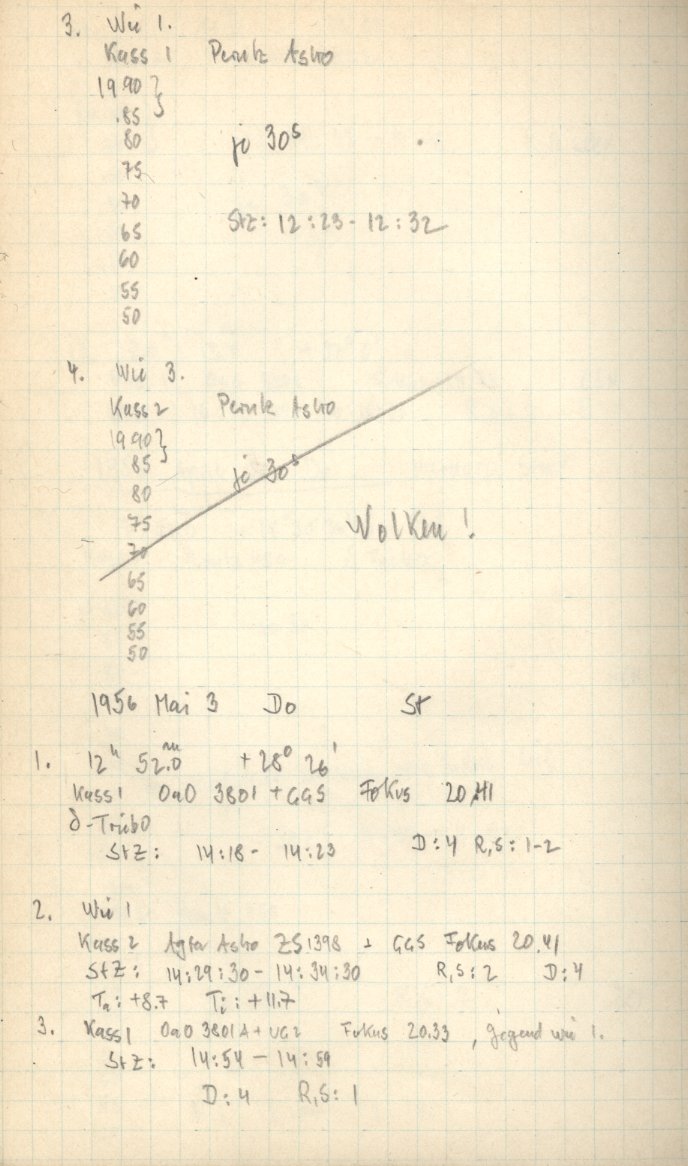 3. Wie 1.
Kass 1 Perutz Astro
19.90 }
.85
80
je 30s
75
70
65
StZ: 12:23 - 12:32
60
55
50
4. Wie 3.
Kass 2 Perutz Astro
19.90 }
85
je 30s
80
75
Wolken!
70
65
60
55
50
1956 Mai 3 Do St
1. 12h 52.0m +28° 26'
Kass 1 OaO 3801 + GG5 Fokus 20,41
StZ: 14:18 - 14:23 D:4 R,S: 1-2
2. Wie 1
Kass 2 Agfa Astro ZS 1398 + GG5 Fokus 20.41
StZ: 14:29:30 - 14:34:30 R,S: 2 D:4
Ta: +8.7 Ti: +11.7
3. Kass 1 OaO 3801A + UG2 Fokus 20.33, Gegend wie 1.
StZ: 14:54 - 14:59
D:4 R,S: 1